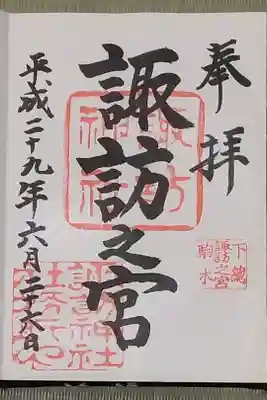 奉拝
下總
諏訪之宮
駒木
諏訪之宮
諏訪神社
平成二十九年六月二十六日